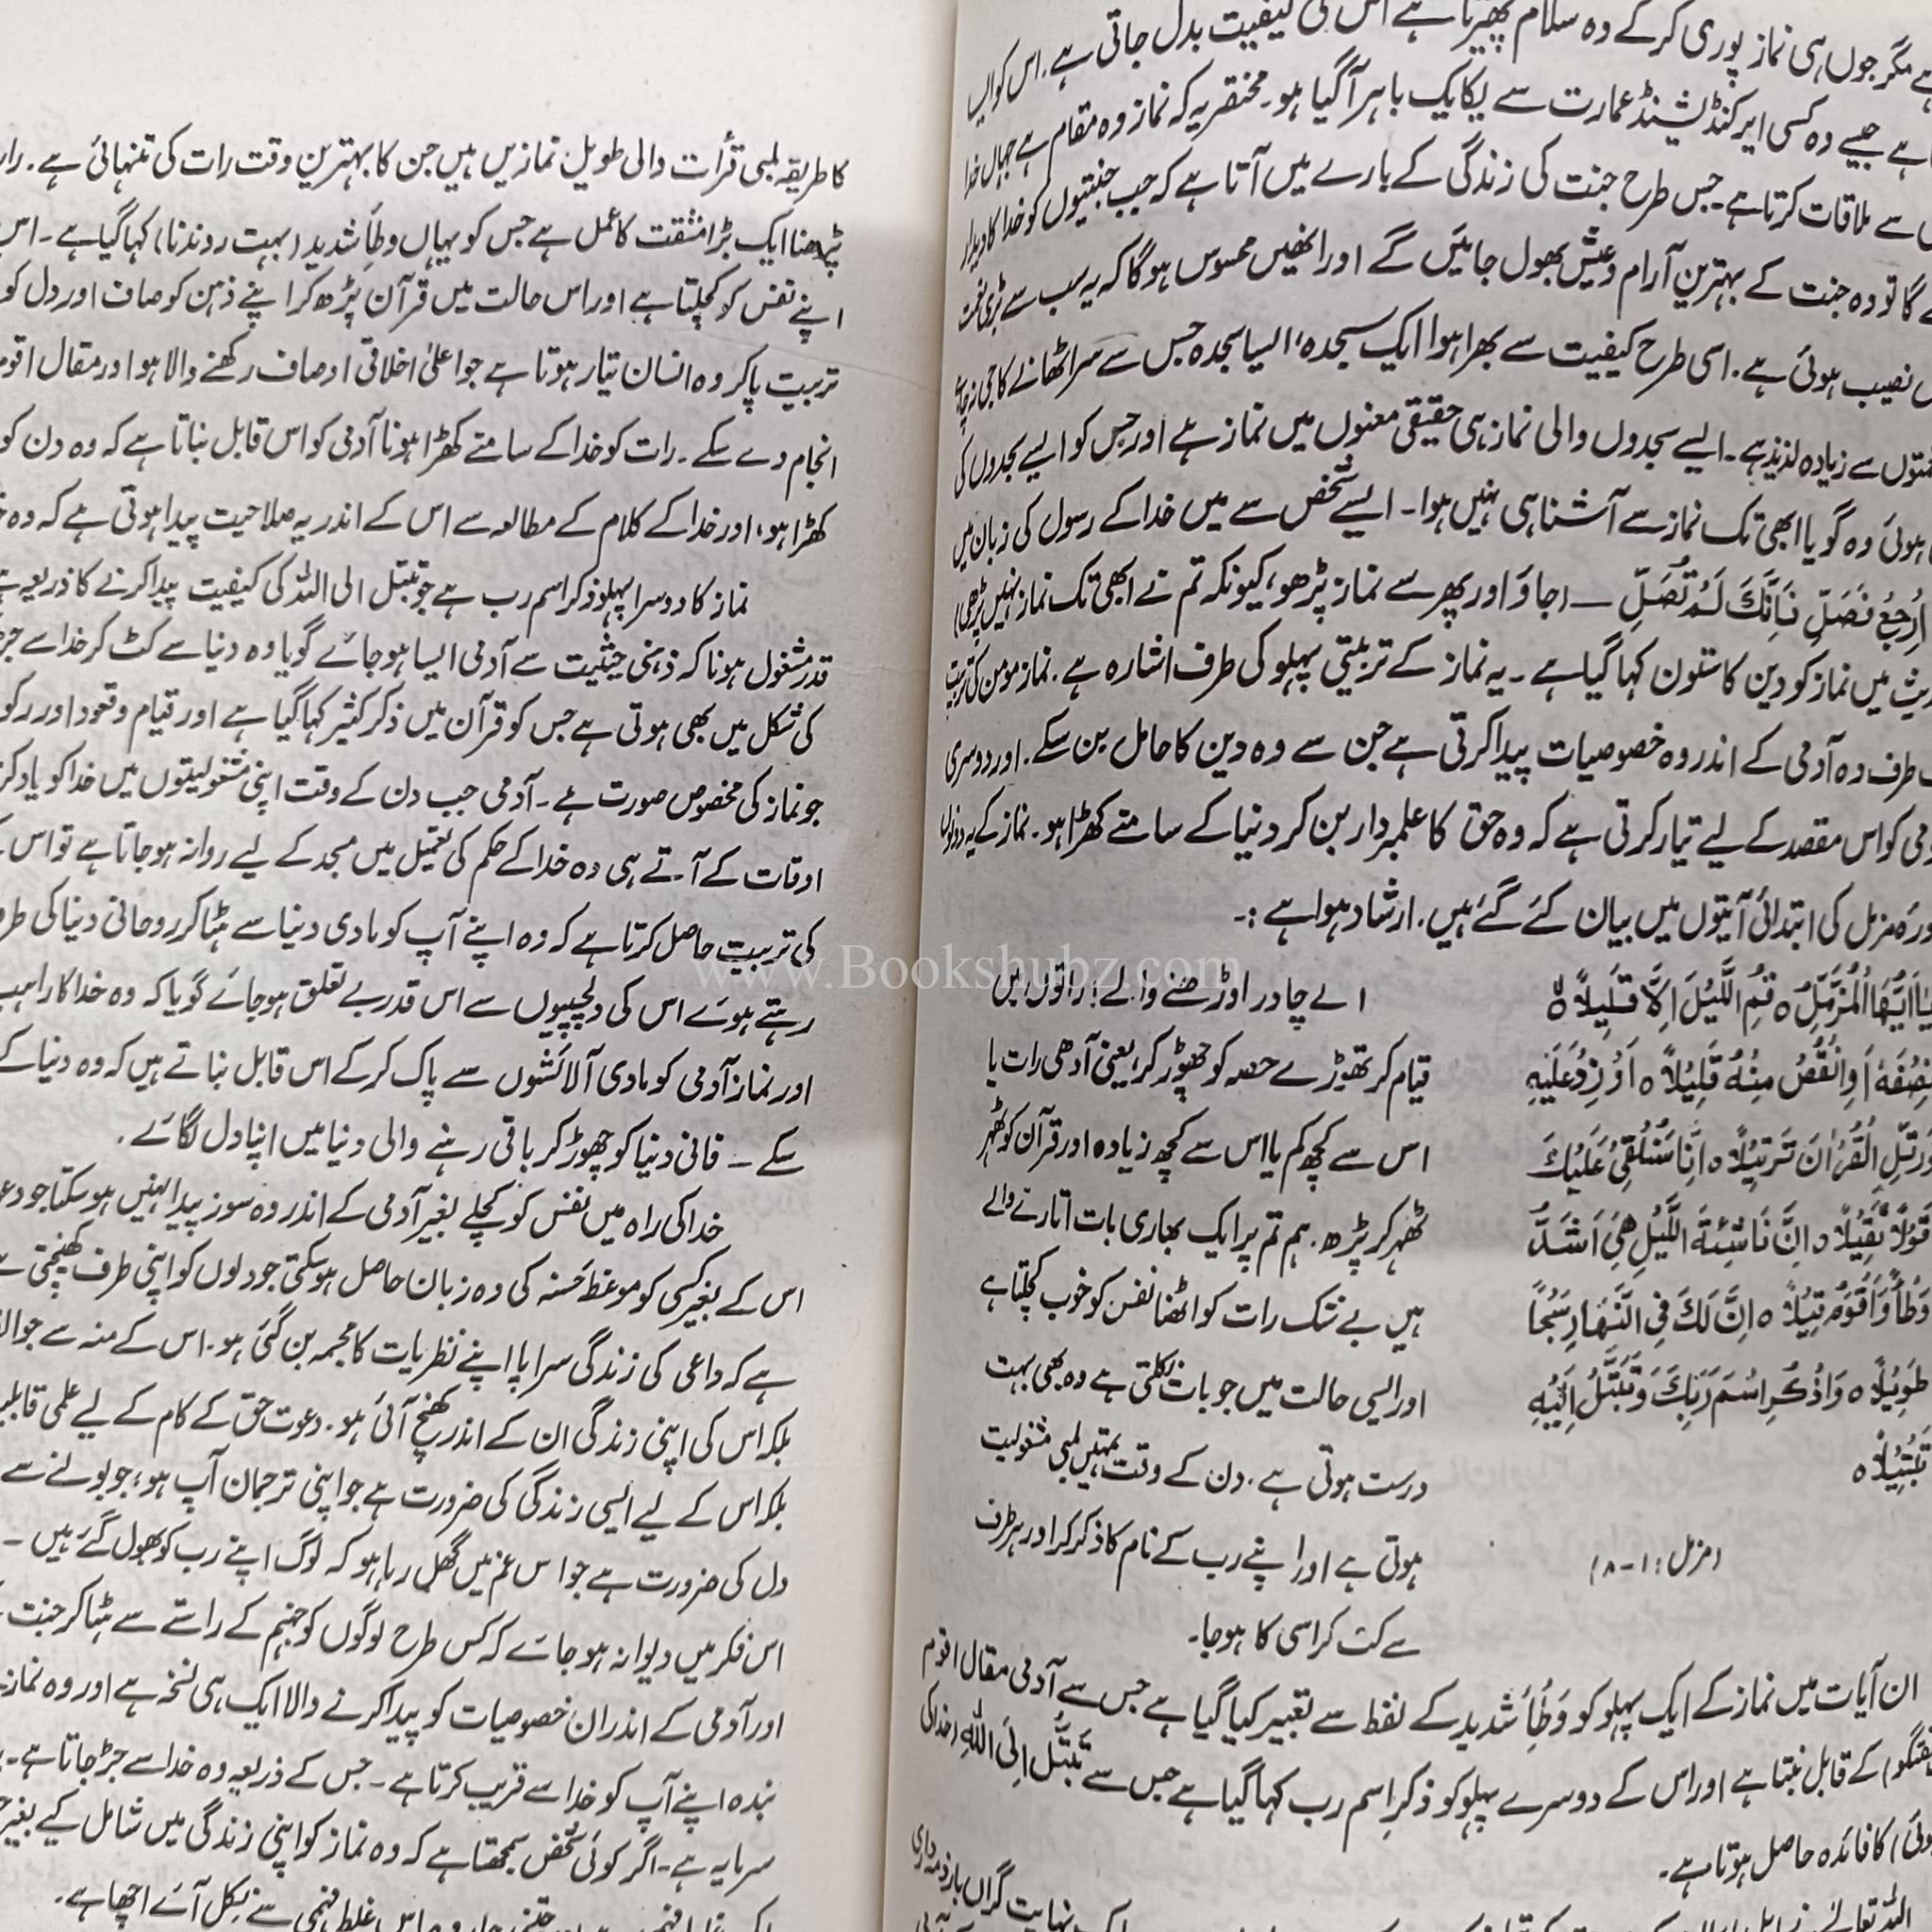 مگر جوں ہی نماز پوری کرکے وہ سلام پھیرتا ہے اس کی کیفیت بدل جاتی ہے۔ اس کو ایسا
ہے جیسے وہ کسی ایرکنڈیشنڈ عمارت سے یکایک باہر آگیا ہو۔ مختصر یہ کہ نماز وہ مقام ہے جہاں خدا
سے ملاقات کرتا ہے۔ جس طرح جنت کی زندگی کے بارے میں آتا ہے کہ جب جنتیوں کو خدا کا دیدار
گا تو وہ جنت کے بہترین آرام و عیش بھول جائیں گے اور انھیں محسوس ہوگا کہ یہ سب سے بڑی نعمت
نصیب ہوئی ہے۔ اسی طرح کیفیت سے بھرا ہوا ایک سجدہ، ایسا سجدہ جس سے سر اٹھانے کا جی نہ چاہے
سے زیادہ لذیذ ہے۔ ایسے سجدوں والی نماز ہی حقیقی معنوں میں نماز ہے اور جس کو ایسے سجدوں کی
ہوئی وہ گویا ابھی تک نماز سے آشنا ہی نہیں ہوا۔ ایسے شخص سے میں خدا کے رسول کی زبان میں
اِرْجِعْ فَصَلِّ فَاِنَّكَ لَمْ تُصَلِّ — (جاؤ اور پھر سے نماز پڑھو، کیونکہ تم نے ابھی تک نماز نہیں پڑھی)
میں نماز کو دین کا ستون کہا گیا ہے۔ یہ نماز کے تربیتی پہلو کی طرف اشارہ ہے۔ نماز مومن کی تربیت
طرف وہ آدمی کے اندر وہ خصوصیات پیدا کرتی ہے جن سے وہ دین کا حامل بن سکے۔ اور دوسری
کو اس مقصد کے لیے تیار کرتی ہے کہ وہ حق کا علمبردار بن کر دنیا کے سامنے کھڑا ہو۔ نماز کے یہ دونوں
مزمل کی ابتدائی آیتوں میں بیان کئے گئے ہیں۔ ارشاد ہوا ہے :-
يٰاَيُّهَا الْمُزَّمِّلُ ٥ قُمِ اللَّيْلَ اِلَّا قَلِيْلًا ٥
نِصْفَهٗ اَوِ انْقُصْ مِنْهُ قَلِيْلًا ٥ اَوْ زِدْ عَلَيْهِ
وَرَتِّلِ الْقُرْاٰنَ تَرْتِيْلًا ٥ اِنَّا سَنُلْقِيْ عَلَيْكَ
قَوْلًا ثَقِيْلًا ٥ اِنَّ نَاشِئَةَ اللَّيْلِ هِيَ اَشَدُّ
وَطْأً وَّاَقْوَمُ قِيْلًا ٥ اِنَّ لَكَ فِي النَّهَارِ سَبْحًا
طَوِيْلًا ٥ وَاذْكُرِ اسْمَ رَبِّكَ وَتَبَتَّلْ اِلَيْهِ
تَبْتِيْلًا ٥
(مزمل: ۱-۸)
اے چادر اوڑھنے والے! راتوں میں
قیام کر تھوڑے حصہ کو چھوڑ کر، یعنی آدھی رات یا
اس سے کچھ کم یا اس سے کچھ زیادہ اور قرآن کو ٹھہر
ٹھہر کر پڑھ۔ ہم تم پر ایک بھاری بات اتارنے والے
ہیں بے شک رات کو اٹھنا نفس کو خوب کچلتا ہے
اور ایسی حالت میں جو بات نکلتی ہے وہ بھی بہت
درست ہوتی ہے۔ دن کے وقت تمہیں لمبی مشغولیت
ہوتی ہے اور اپنے رب کے نام کا ذکر کر اور ہر طرف
سے کٹ کر اسی کا ہوجا۔
ان آیات میں نماز کے ایک پہلو کو وَطْأً شدید کے لفظ سے تعبیر کیا گیا ہے جس سے آدمی مقال اقوم
کے قابل بنتا ہے اور اس کے دوسرے پہلو کو ذکرِ اسم رب کہا گیا ہے جس سے تَبَتُّل اِلَی اللّٰہِ (خدا کی
کا فائدہ حاصل ہوتا ہے۔
نہایت گراں بار ذمہ داری
کا طریقہ لمبی قرأت والی طویل نمازیں ہیں جن کا بہترین وقت رات کی تنہائی ہے۔
پڑھنا ایک بڑا مشقت کا عمل ہے جس کو یہاں وطأ شدید (بہت روندنا) کہا گیا ہے۔ اس
اپنے نفس کو کچلتا ہے اور اس حالت میں قرآن پڑھ کر اپنے ذہن کو صاف اور دل کو
تربیت پاکر وہ انسان تیار ہوتا ہے جو اعلیٰ اخلاقی اوصاف رکھنے والا ہو اور مقال اقوم
انجام دے سکے۔ رات کو خدا کے سامنے کھڑا ہونا آدمی کو اس قابل بناتا ہے کہ وہ دن کو
کھڑا ہو، اور خدا کے کلام کے مطالعہ سے اس کے اندر یہ صلاحیت پیدا ہوتی ہے کہ وہ
نماز کا دوسرا پہلو ذکر اسم رب ہے جو تبتل الی اللہ کی کیفیت پیدا کرنے کا ذریعہ ہے
قدر مشغول ہونا کہ ذہنی حیثیت سے آدمی ایسا ہوجائے گویا وہ دنیا سے کٹ کر خدا سے جڑ
کی شکل میں بھی ہوتی ہے جس کو قرآن میں ذکر کثیر کہا گیا ہے اور قیام و قعود اور رکوع
جو نماز کی مخصوص صورت ہے۔ آدمی جب دن کے وقت اپنی مشغولیتوں میں خدا کو یاد
اوقات کے آتے ہی وہ خدا کے حکم کی تعمیل میں مسجد کے لیے روانہ ہوجاتا ہے تو اس
کی تربیت حاصل کرتا ہے کہ وہ اپنے آپ کو مادی دنیا سے ہٹا کر روحانی دنیا کی طرف
رہتے ہوئے اس کی دلچسپیوں سے اس قدر بے تعلق ہوجائے گویا کہ وہ خدا کا راہب
اور نماز آدمی کو مادی آلائشوں سے پاک کرکے اس قابل بناتے ہیں کہ وہ دنیا کے
سکے — فانی دنیا کو چھوڑ کر باقی رہنے والی دنیا میں اپنا دل لگائے۔
خدا کی راہ میں نفس کو کچلے بغیر آدمی کے اندر وہ سوز پیدا نہیں ہو سکتا جو
اس کے بغیر کسی کو موعظۂ حسنہ کی وہ زبان حاصل ہو سکتی جو دلوں کو اپنی طرف کھینچتی ہے
ہے کہ داعی کی زندگی سراپا اپنے نظریات کا مجسمہ بن گئی ہو۔ اس کے منہ سے جو
بلکہ اس کی اپنی زندگی ان کے اندر کھنچ آئی ہو۔ دعوت حق کے کام کے لیے علمی
بلکہ اس کے لیے ایسی زندگی کی ضرورت ہے جو اپنی ترجمان آپ ہو، جو بولنے سے
دل کی ضرورت ہے جو اس غم میں گھل رہا ہو کہ لوگ اپنے رب کو بھول گئے ہیں۔
اس فکر میں دیوانہ ہوجائے کہ کس طرح لوگوں کو جہنم کے راستے سے ہٹا کر جنت
اور آدمی کے اندر ان خصوصیات کو پیدا کرنے والا ایک ہی نسخہ ہے اور وہ نماز
بندہ اپنے آپ کو خدا سے قریب کرتا ہے۔ جس کے ذریعہ وہ خدا سے جڑ جاتا ہے۔
سرمایہ ہے۔ اگر کوئی شخص سمجھتا ہے کہ وہ نماز کو اپنی زندگی میں شامل کیے بغیر
غلط فہمی سے نکل آئے اچھا ہے۔
www.Bookshubz.com